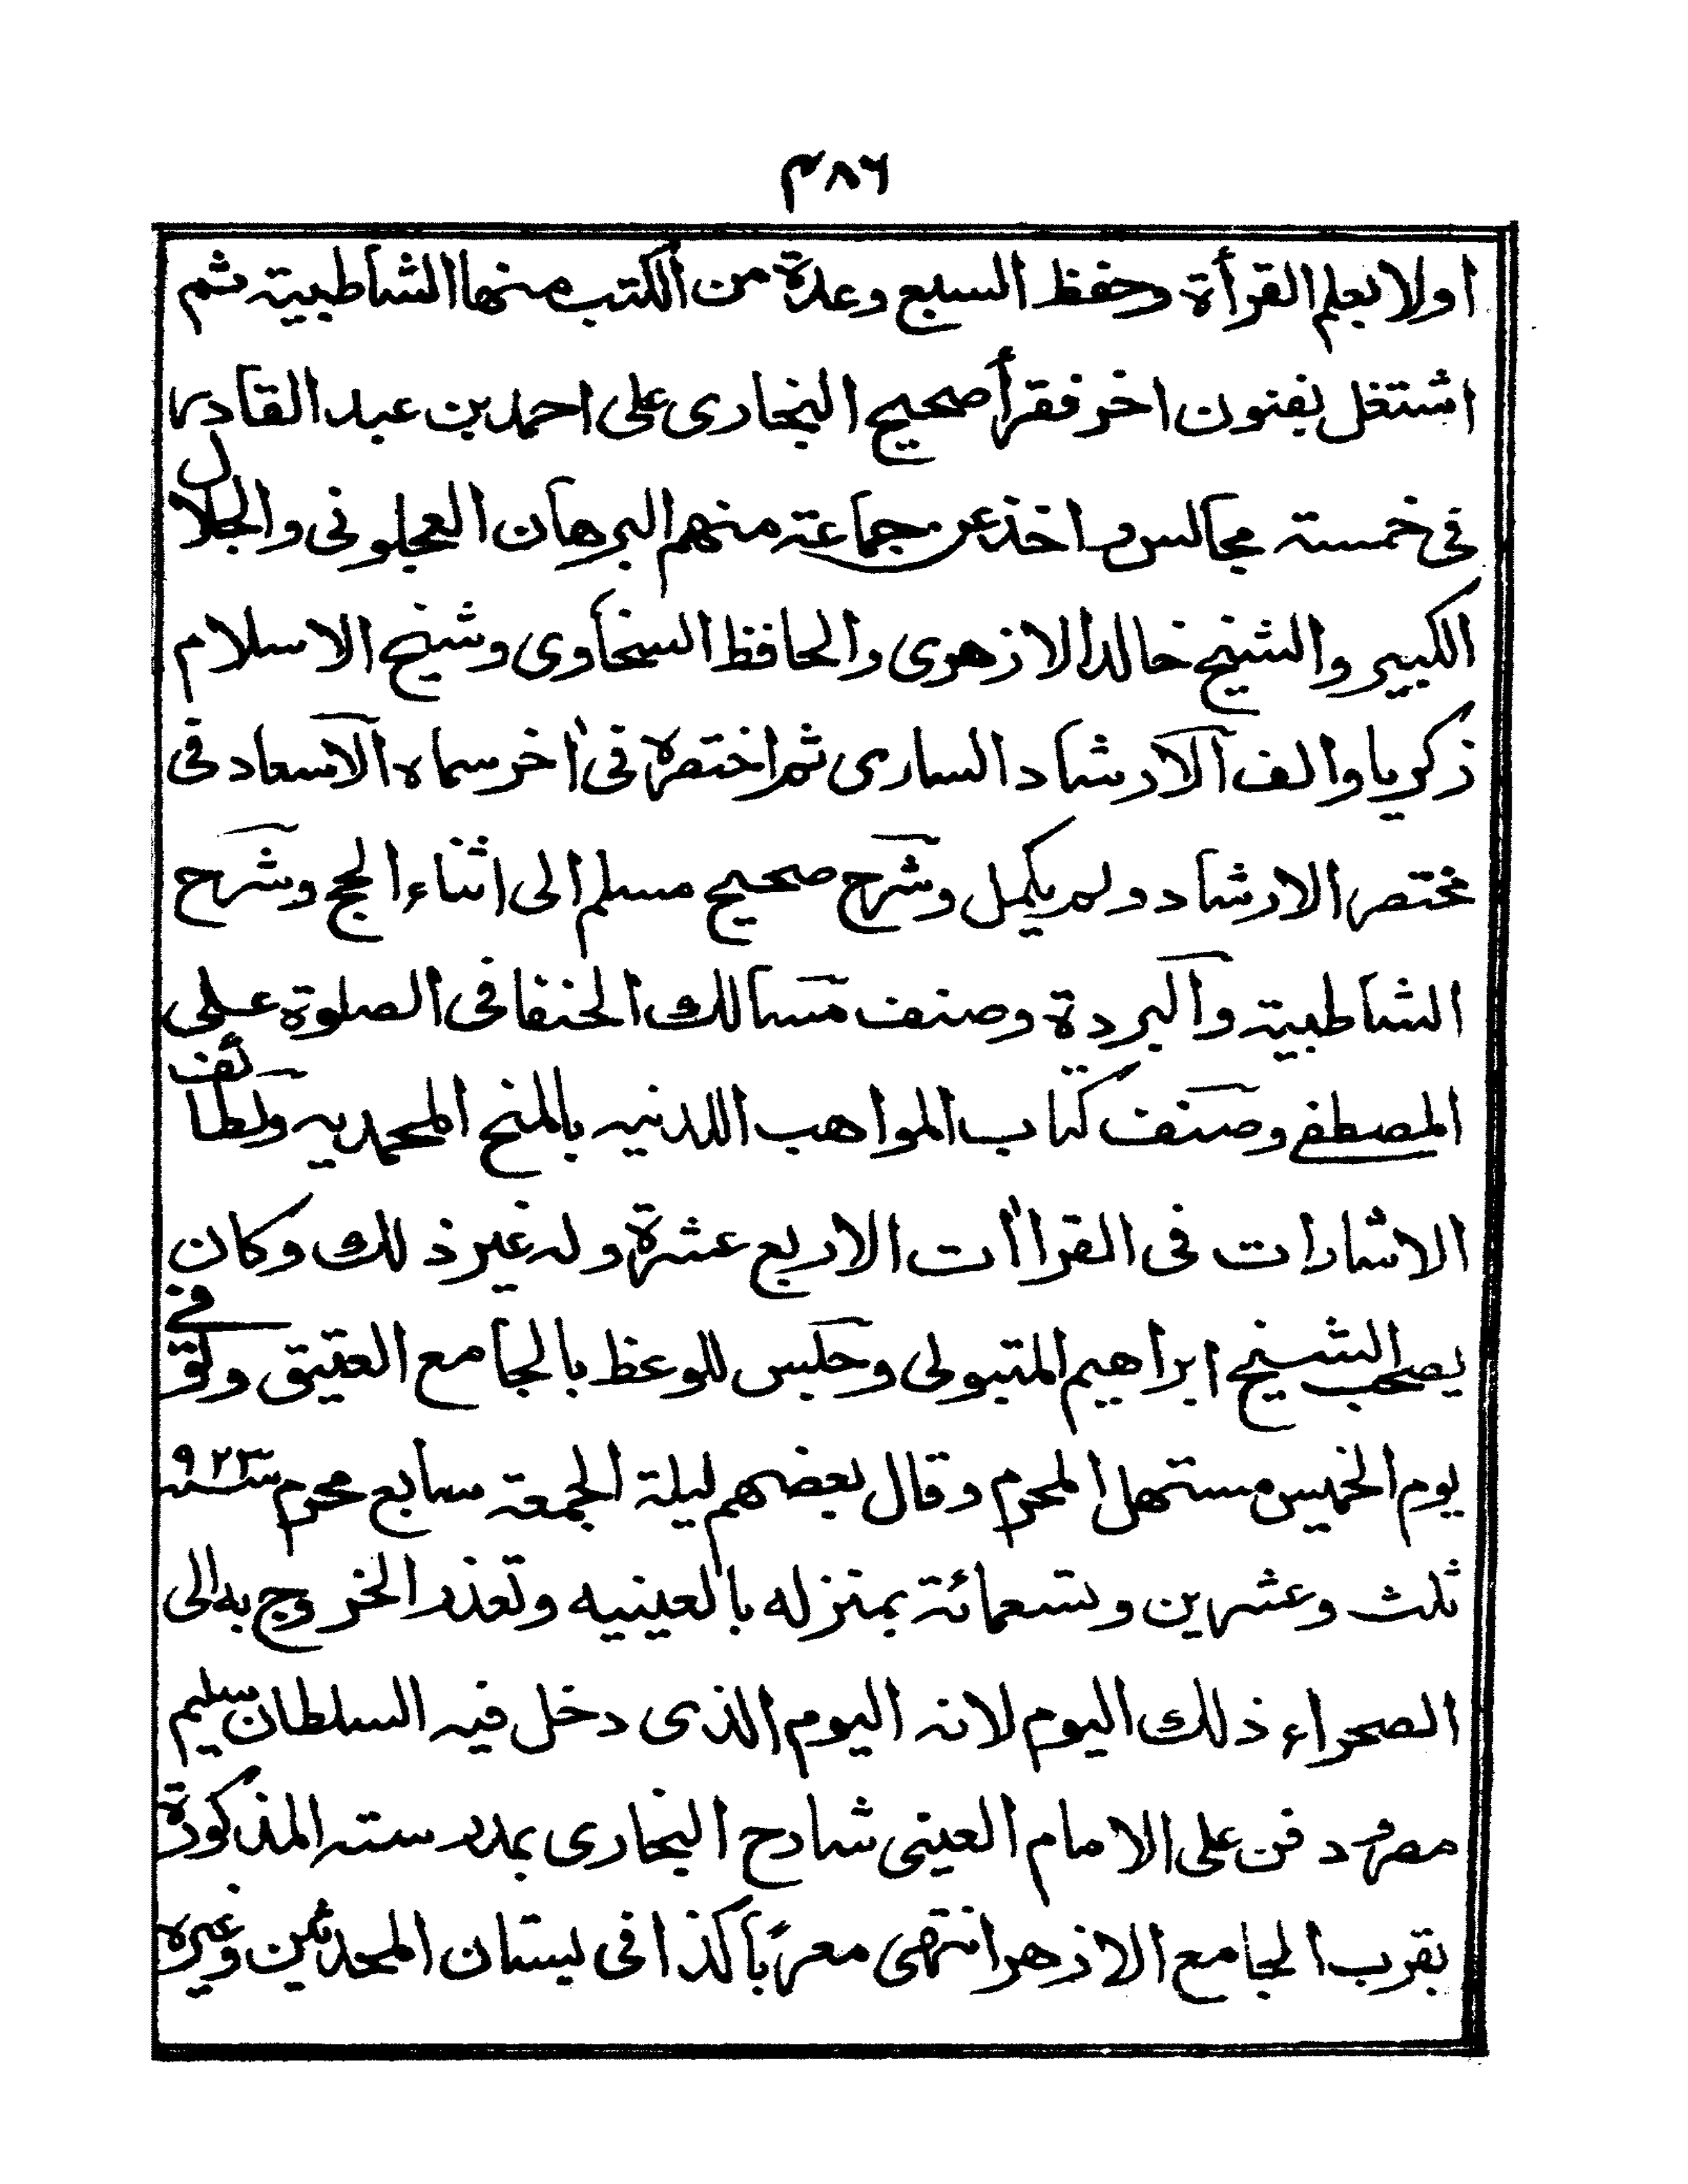 ٣٨٦
اولا بعلم القرأة وحفظ السبع وعدة من الكتب منها الشاطبية ثم
اشتغل بفنون اخر فقرأ صحيح البخارى على احمد بن عبد القادر
فى خمسة مجالس واخذ عن جماعة منهم البرهان العجلونى والجلال
الكبير والشيخ خالد الازهرى والحافظ السخاوى وشيخ الاسلام
زكريا والف الارشاد السارى ثم اختصره فى اخر سماه الاسعاد فى
مختصر الارشاد ولم يكمل وشرح صحيح مسلم الى اثناء الحج وشرح
الشاطبية والبردة وصنف مسالك الحنفا فى الصلوة على
المصطفے وصنف كتاب المواهب اللدنيه بالمنح المحمديه ولطائف
الاشارات فى القراأت الاربع عشرة وله غير ذلك وكان
يصحب الشيخ ابراهيم المتبولى وجلس للوعظ بالجامع العتيق وتوفے
يوم الخميس مستهل المحرم وقال بعضهم ليلة الجمعة سابع محرم سنه ٩٢٣
ثلث وعشرين وتسعمائة بمنزله بالعينيه وتعذر الخروج به الى
الصحراء ذلك اليوم لانه اليوم الذى دخل فيه السلطان سليم
مصر ودفن على الامام العينى شارح البخارى بمدرسته المذكورة
بقرب الجامع الازهر انتهى معربًا كذا فى بستان المحدثين وغيره